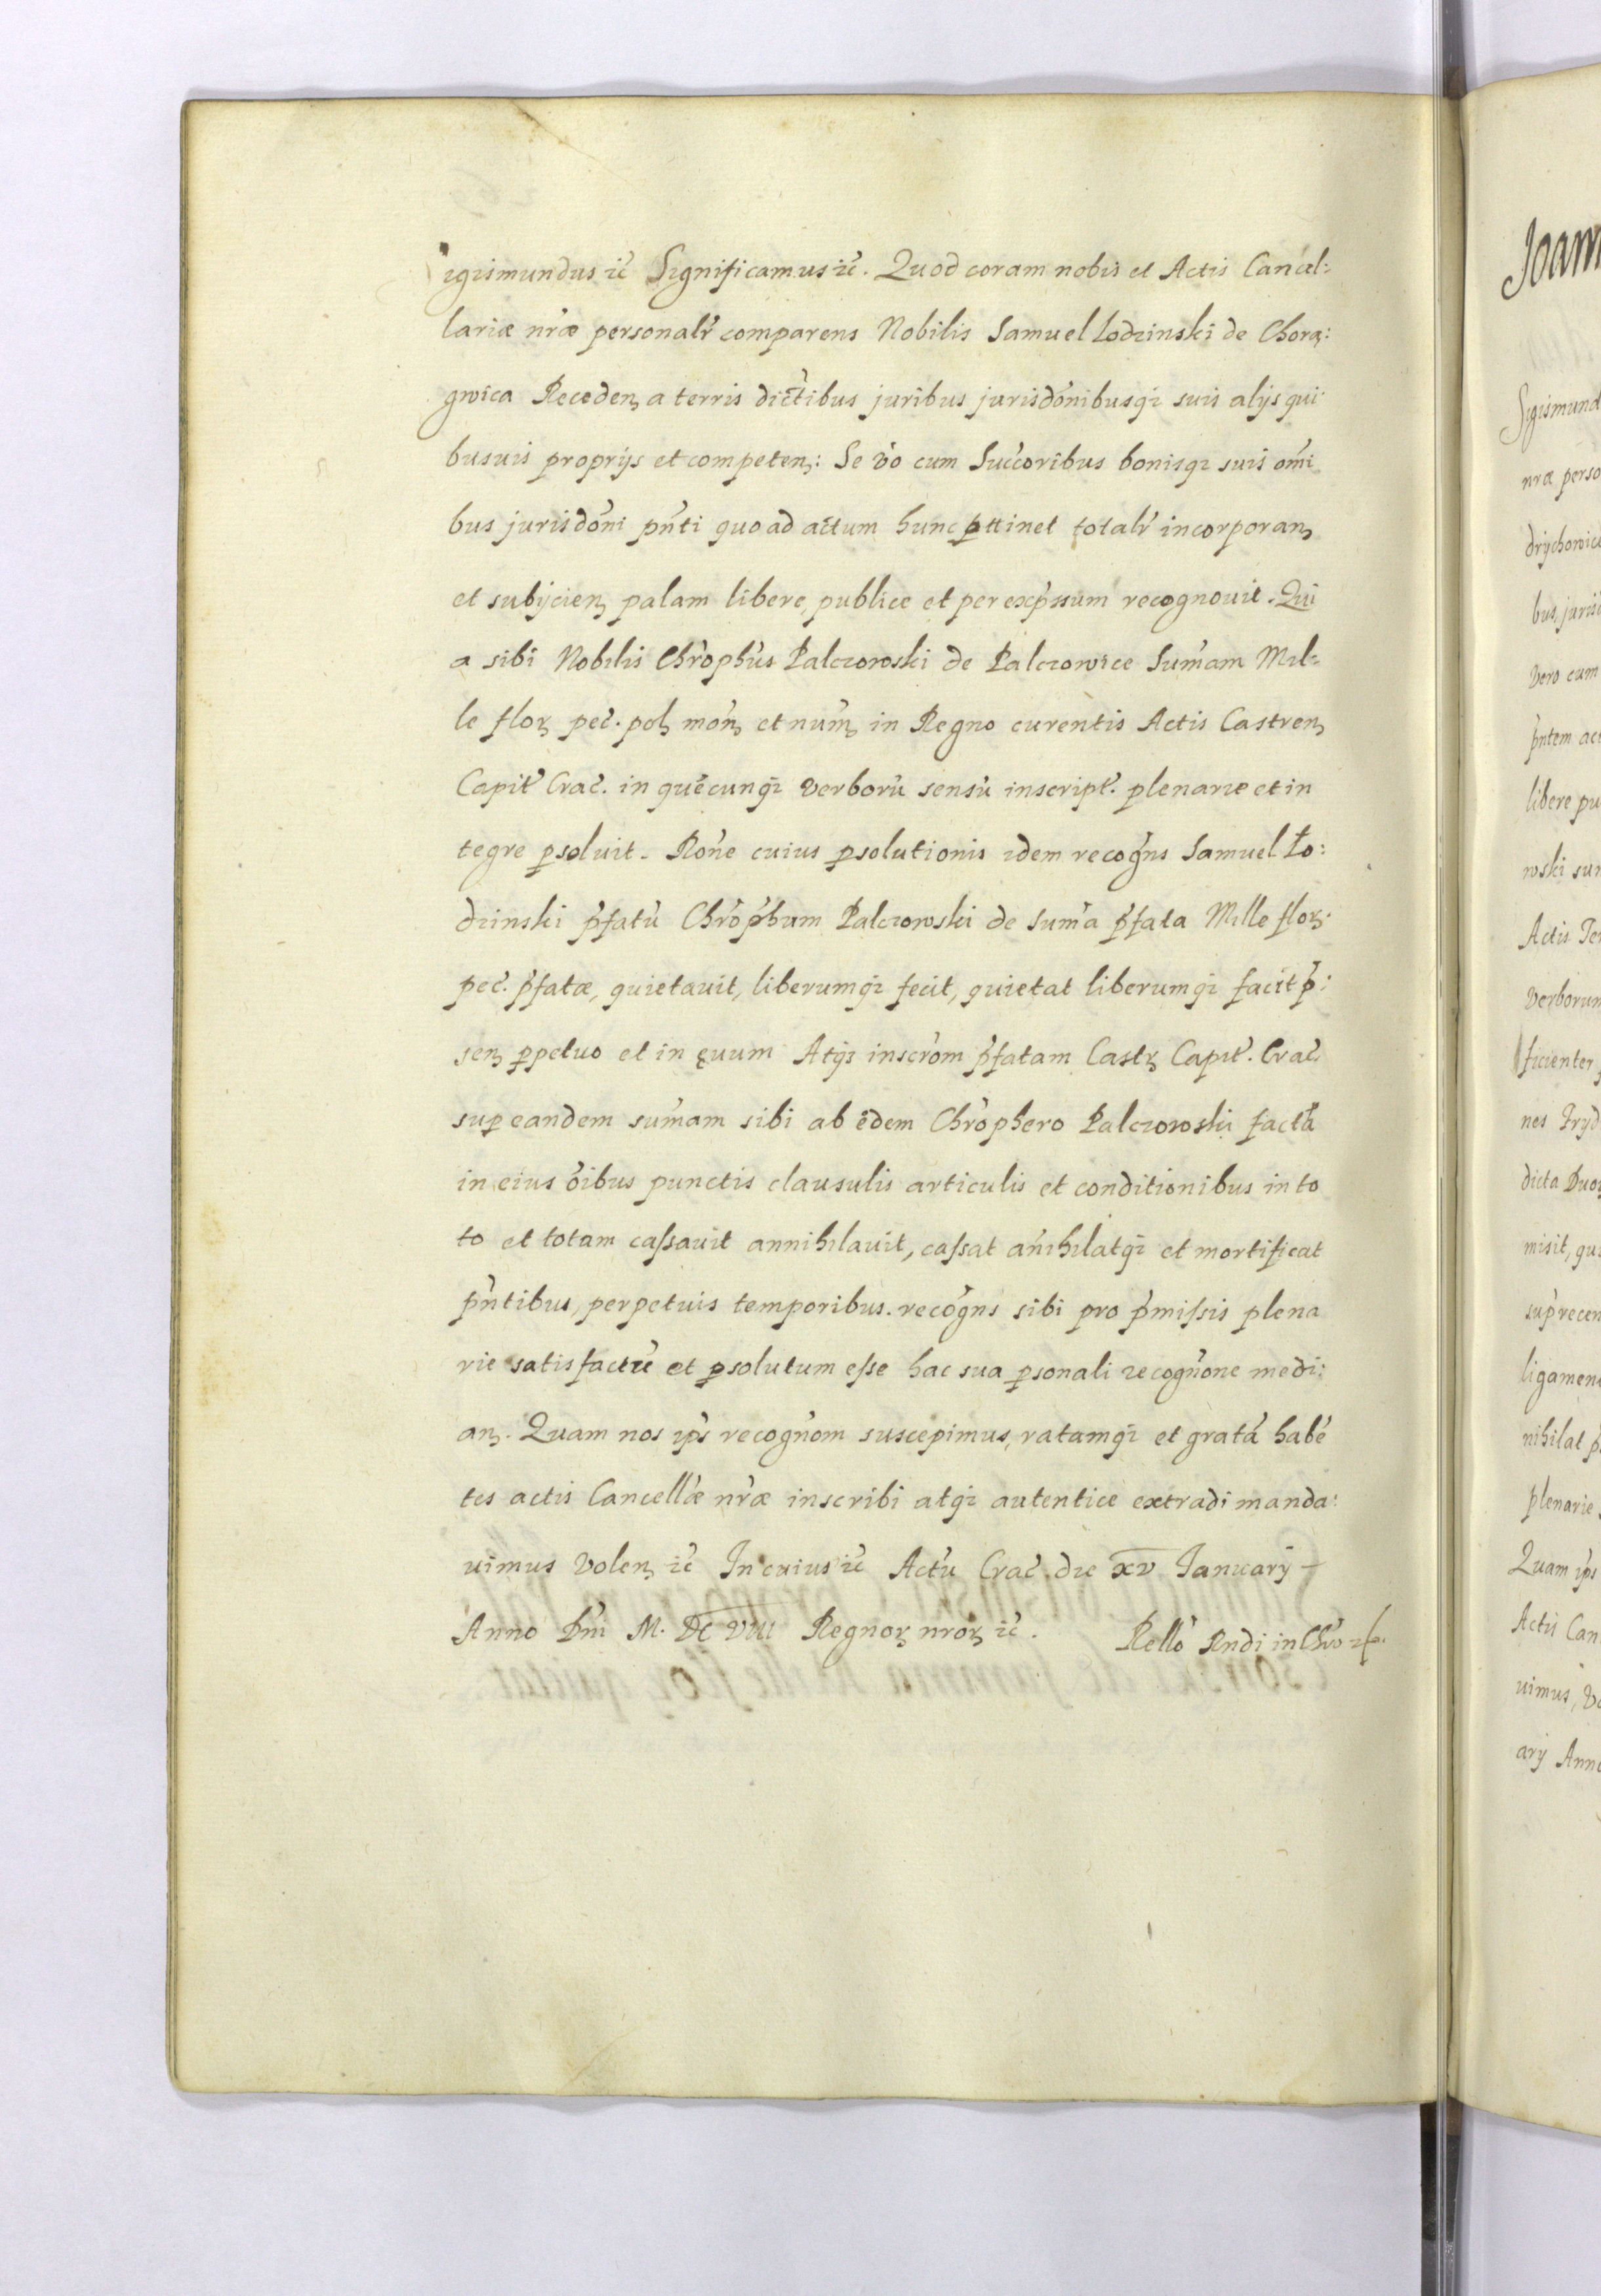 igismundus ꝛc̃ Significamus ꝛc̃. Quod coram nobis et Actis Cancel:
lariæ nr̃æ personalr̃ comparens Nobilis Samuel Lodzinski de Chorą:
gwica Receden̨ a terris dictĩbus juribus jurisdõnibusqꝫ suis alijs qui:
busuis proprijs et competen̨: Se v̄o cum Succ̃oribus bonisqꝫ suis om̃i
bus jurisdõni pñti quo ad actum hunc ꝑttinet totalr̃ incorporan̨
et subijcien̨ palam libere, publice et per exp̃ssum recognouit. Qui
a sibi Nobilis Chrõphũs Palczowski de Palczowice Sum̃am Mil:
le flor̨ pec̃. pol̨ moñ̨ et num̨̃ in Regno curentis Actis Castren̨
Capit̃ Crac̃. in quẽcunqꝫ verborũ sensũ inscript̃. plenarie et in
tegre ꝑsoluit. Rõne cuius ꝑsolutionis idem recogñs Samuel Ło:
dzinski p̃fatũ Chrõphum Palczowski de Sum̃a p̃fata Mille flor̨.
pec̃. p̃fatæ, quietauit, liberumqꝫ fecit, quietat liberumqꝫ facit p̃:
sen̨ ꝑpetuo et in ęuum Atqꝫ inscrõm p̃fatam Castr̨ Capit̃. Crac̃.
suꝑ eandem sum̃am sibi ab eõdem Chrõphero Palczowski factã
in eius õibus punctis clausulis articulis et conditionibus in to
to et totam caſsauit annihilauit, caſsat añihilatqꝫ et mortificat
pñtibus, perpetuis temporibus. recogñs sibi pro p̃miſsis plena
rie satisfactũ et ꝑsolutum eſse hac sua ꝑsonali recogñone medi:
an̨. Quam nos ip̃s recogñom suscepimus, ratamqꝫ et gratã habẽ
tes actis Cancellãe nr̃æ inscribi atqꝫ autentice extradi manda:
uimus Volen̨ ꝛc̃ In cuius ꝛc̃ Actũ Crac̃. die xv Ianuarij
Anno Dñi M. DC VIII Regnor̨ nror̨ ꝛc̃. Rellõ Rndi in Chrõ
Joan
Sigismund
nræ perso
drychowic
bus, juris
Vero cum
p̃ntem ac
libere pu
wski sum
Actis Te
Verborum
ficienter
nes Fryd
dicta Duo
misit, qui
sup̃ recen
ligamen
nihilat p̃
plenarie
Quam ip̃s
Actis Can
uimus, Vo
arij Anno